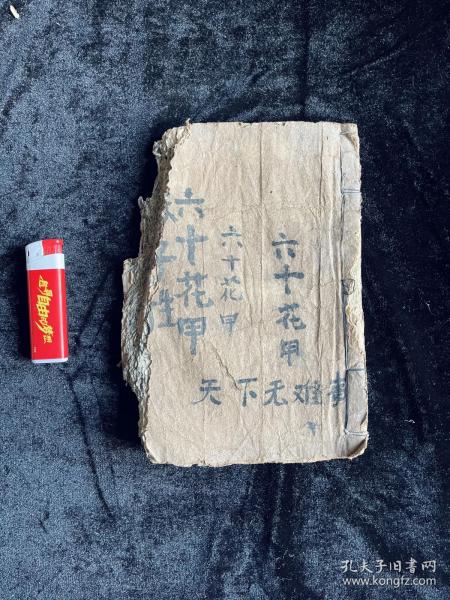 六十花甲
六十花甲
六十花甲
天下无难事
追寻自由的梦想
孔夫子旧书网
www.kongfz.com